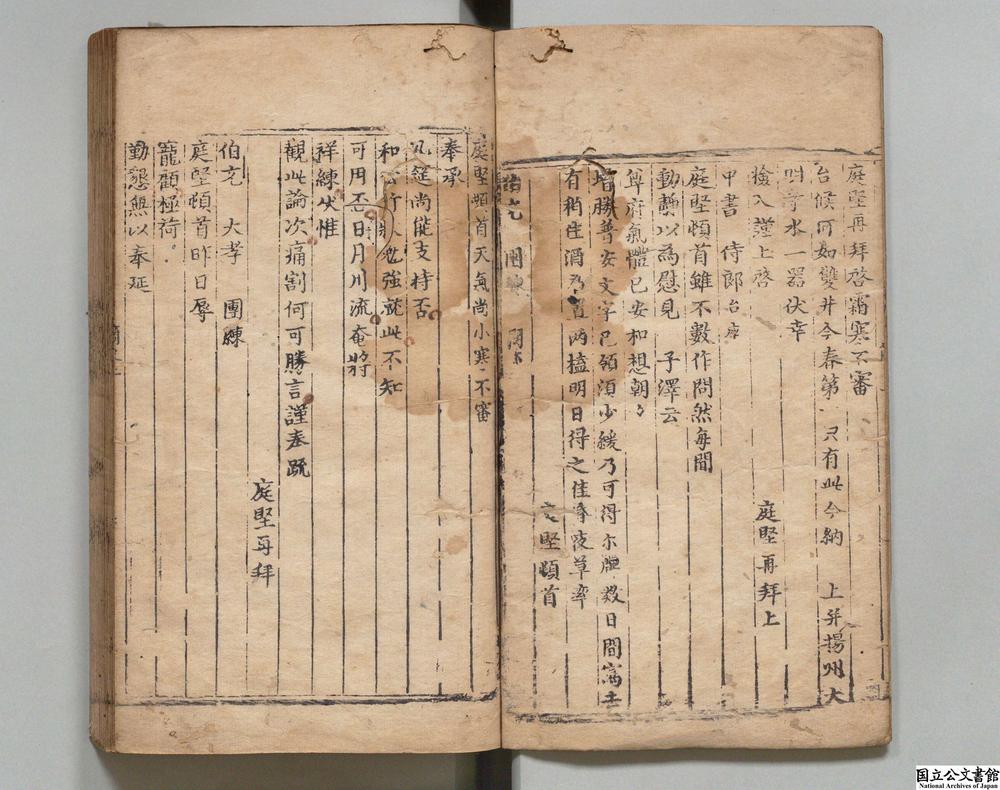 庭堅再拜啓霜寒不審
台候何如雙井今春第 只有此今納 上并揚州大
明寺水一器伏幸
撿入謹上啓 庭堅再拜上
中書 侍郎台座
庭堅頓首雖不數作問然每聞
動靜以為慰見 子澤云
尊府氣體已安和想朝夕
增勝普安文字已領須少緩乃可得 數日間
有稍佳酒 置兩榼明日得之佳 夜草率
庭堅頓首
伯充 團練
庭堅頓首天氣尚小寒不審
奉承
几筵尚能支持否
和 行 勉強就此不知
可用否日月川流奄將
祥練伏惟
觀此論次痛割何可勝言謹奉疏
庭堅再拜
伯充 大孝 團練
庭堅頓首昨日辱
寵顧極荷
勤懇無以奉延
国立公文書館
National Archives of Japan